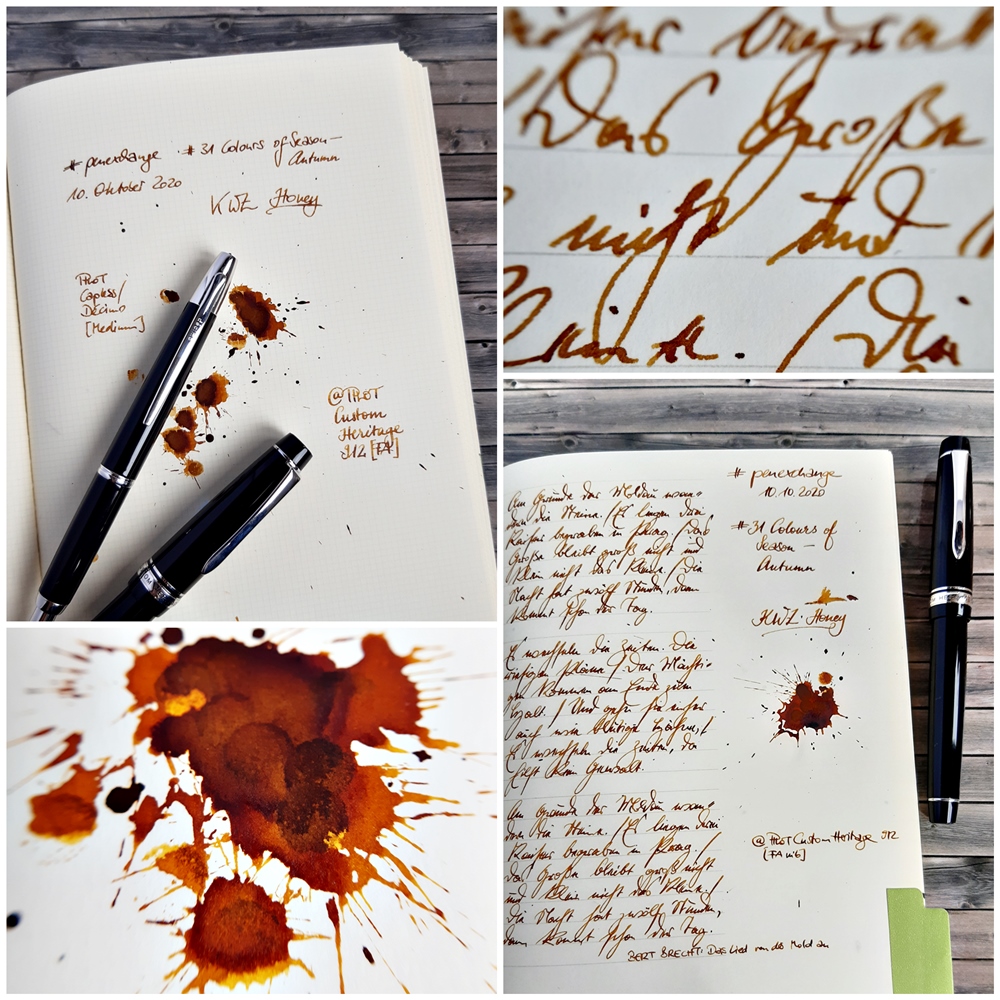 # penexchange # 31 Colours of Season —
Autumn
10. Oktober 2020
KWZ Honey
PILOT
Capless/
Décimo
[Medium]
@PILOT
Custom
Heritage
912 [FA]
Kaiser begraben
Das Große
nicht und
Kleine. / Die
Am Grunde der Moldau wan=
dern die Steine. / Es liegen drei
Kaiser begraben in Prag. / Das
Große bleibt groß nicht und
klein nicht das Kleine. / Die
Nacht hat zwölf Stunden, dann
kommt schon der Tag.
Es wechseln die Zeiten. Die
riesigen Pläne / Der Mächti=
gen kommen am Ende zum
Halt. / Und gehn sie einher
auch wie blutige Hähne, /
Es wechseln die Zeiten, da
hilft kein Gewalt.
Am Grunde der Moldau wan=
dern die Steine. / Es liegen drei
Kaiser begraben in Prag. /
Das Große bleibt groß nicht
und klein nicht das Kleine. /
Die Nacht hat zwölf Stunden,
dann kommt schon der Tag.
BERT BRECHT: Das Lied von der Moldau
# penexchange
10.10.2020
# 31 Colours of
Season —
Autumn
KWZ Honey
@ PILOT Custom Heritage 912
[FA nib]